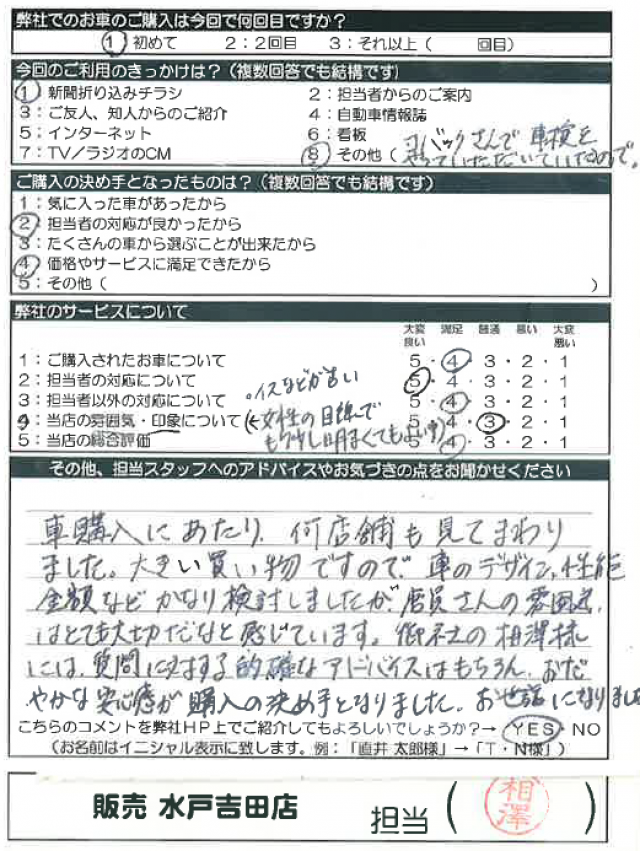 弊社でのお車のご購入は今回で何回目ですか？
1 初めて 2：2回目 3：それ以上（ 回目）
今回のご利用のきっかけは？（複数回答でも結構です）
1：新聞折り込みチラシ 2：担当者からのご案内
3：ご友人、知人からのご紹介 4：自動車情報誌
5：インターネット 6：看板
7：TV／ラジオのCM 8：その他（ コバックさんで車検を
やっていただいていたので。
ご購入の決め手となったものは？（複数回答でも結構です）
1：気に入った車があったから
2：担当者の対応が良かったから
3：たくさんの車から選ぶことが出来たから
4：価格やサービスに満足できたから
5：その他（ ）
弊社のサービスについて
大変良い 満足 普通 悪い 大変悪い
1：ご購入されたお車について 5・4・3・2・1
2：担当者の対応について 5・4・3・2・1
3：担当者以外の対応について 5・4・3・2・1
4：当店の雰囲気・印象について 5・4・3・2・1
5：当店の総合評価 5・4・3・2・1
。イスなどが古い
（←女性の目線で
もう少し明るくてもよい）
その他、担当スタッフへのアドバイスやお気づきの点をお聞かせください
車購入にあたり、何店舗も見てまわり
ました。大きい買い物ですので、車のデザイン、性能
金額などかなり検討しましたが、店員さんの雰囲気
はとても大切だなと感じています。御社の相澤様
には、質問に対する的確なアドバイスはもちろん、おだ
やかな安心感が購入の決め手となりました。お世話になりました
こちらのコメントを弊社HP上でご紹介してもよろしいでしょうか？→ YES・NO
（お名前はイニシャル表示に致します。例：「直井 太郎様」→「T・N様」）
販売 水戸吉田店 担当（ 相澤 ）